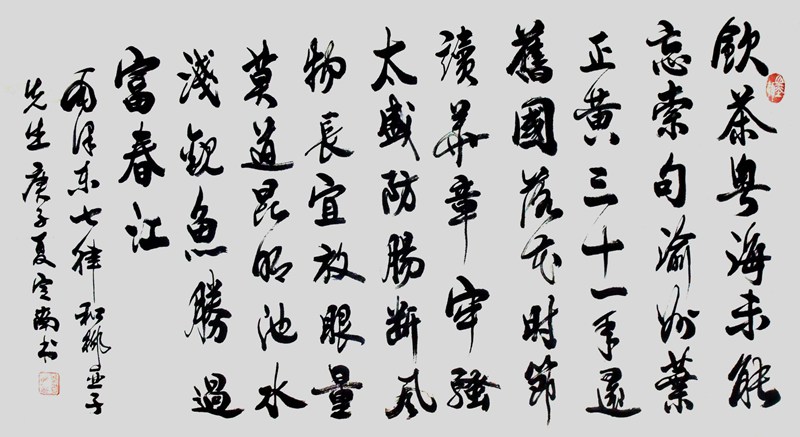 飲茶粵海未能
忘索句渝州葉
正黄三十一年還
舊國落花时節
讀華章牢騷
太盛防腸斷風
物長宜放眼量
莫道昆明池水
淺觀魚勝過
富春江
泽东七律和柳亚子
先生庚子夏书